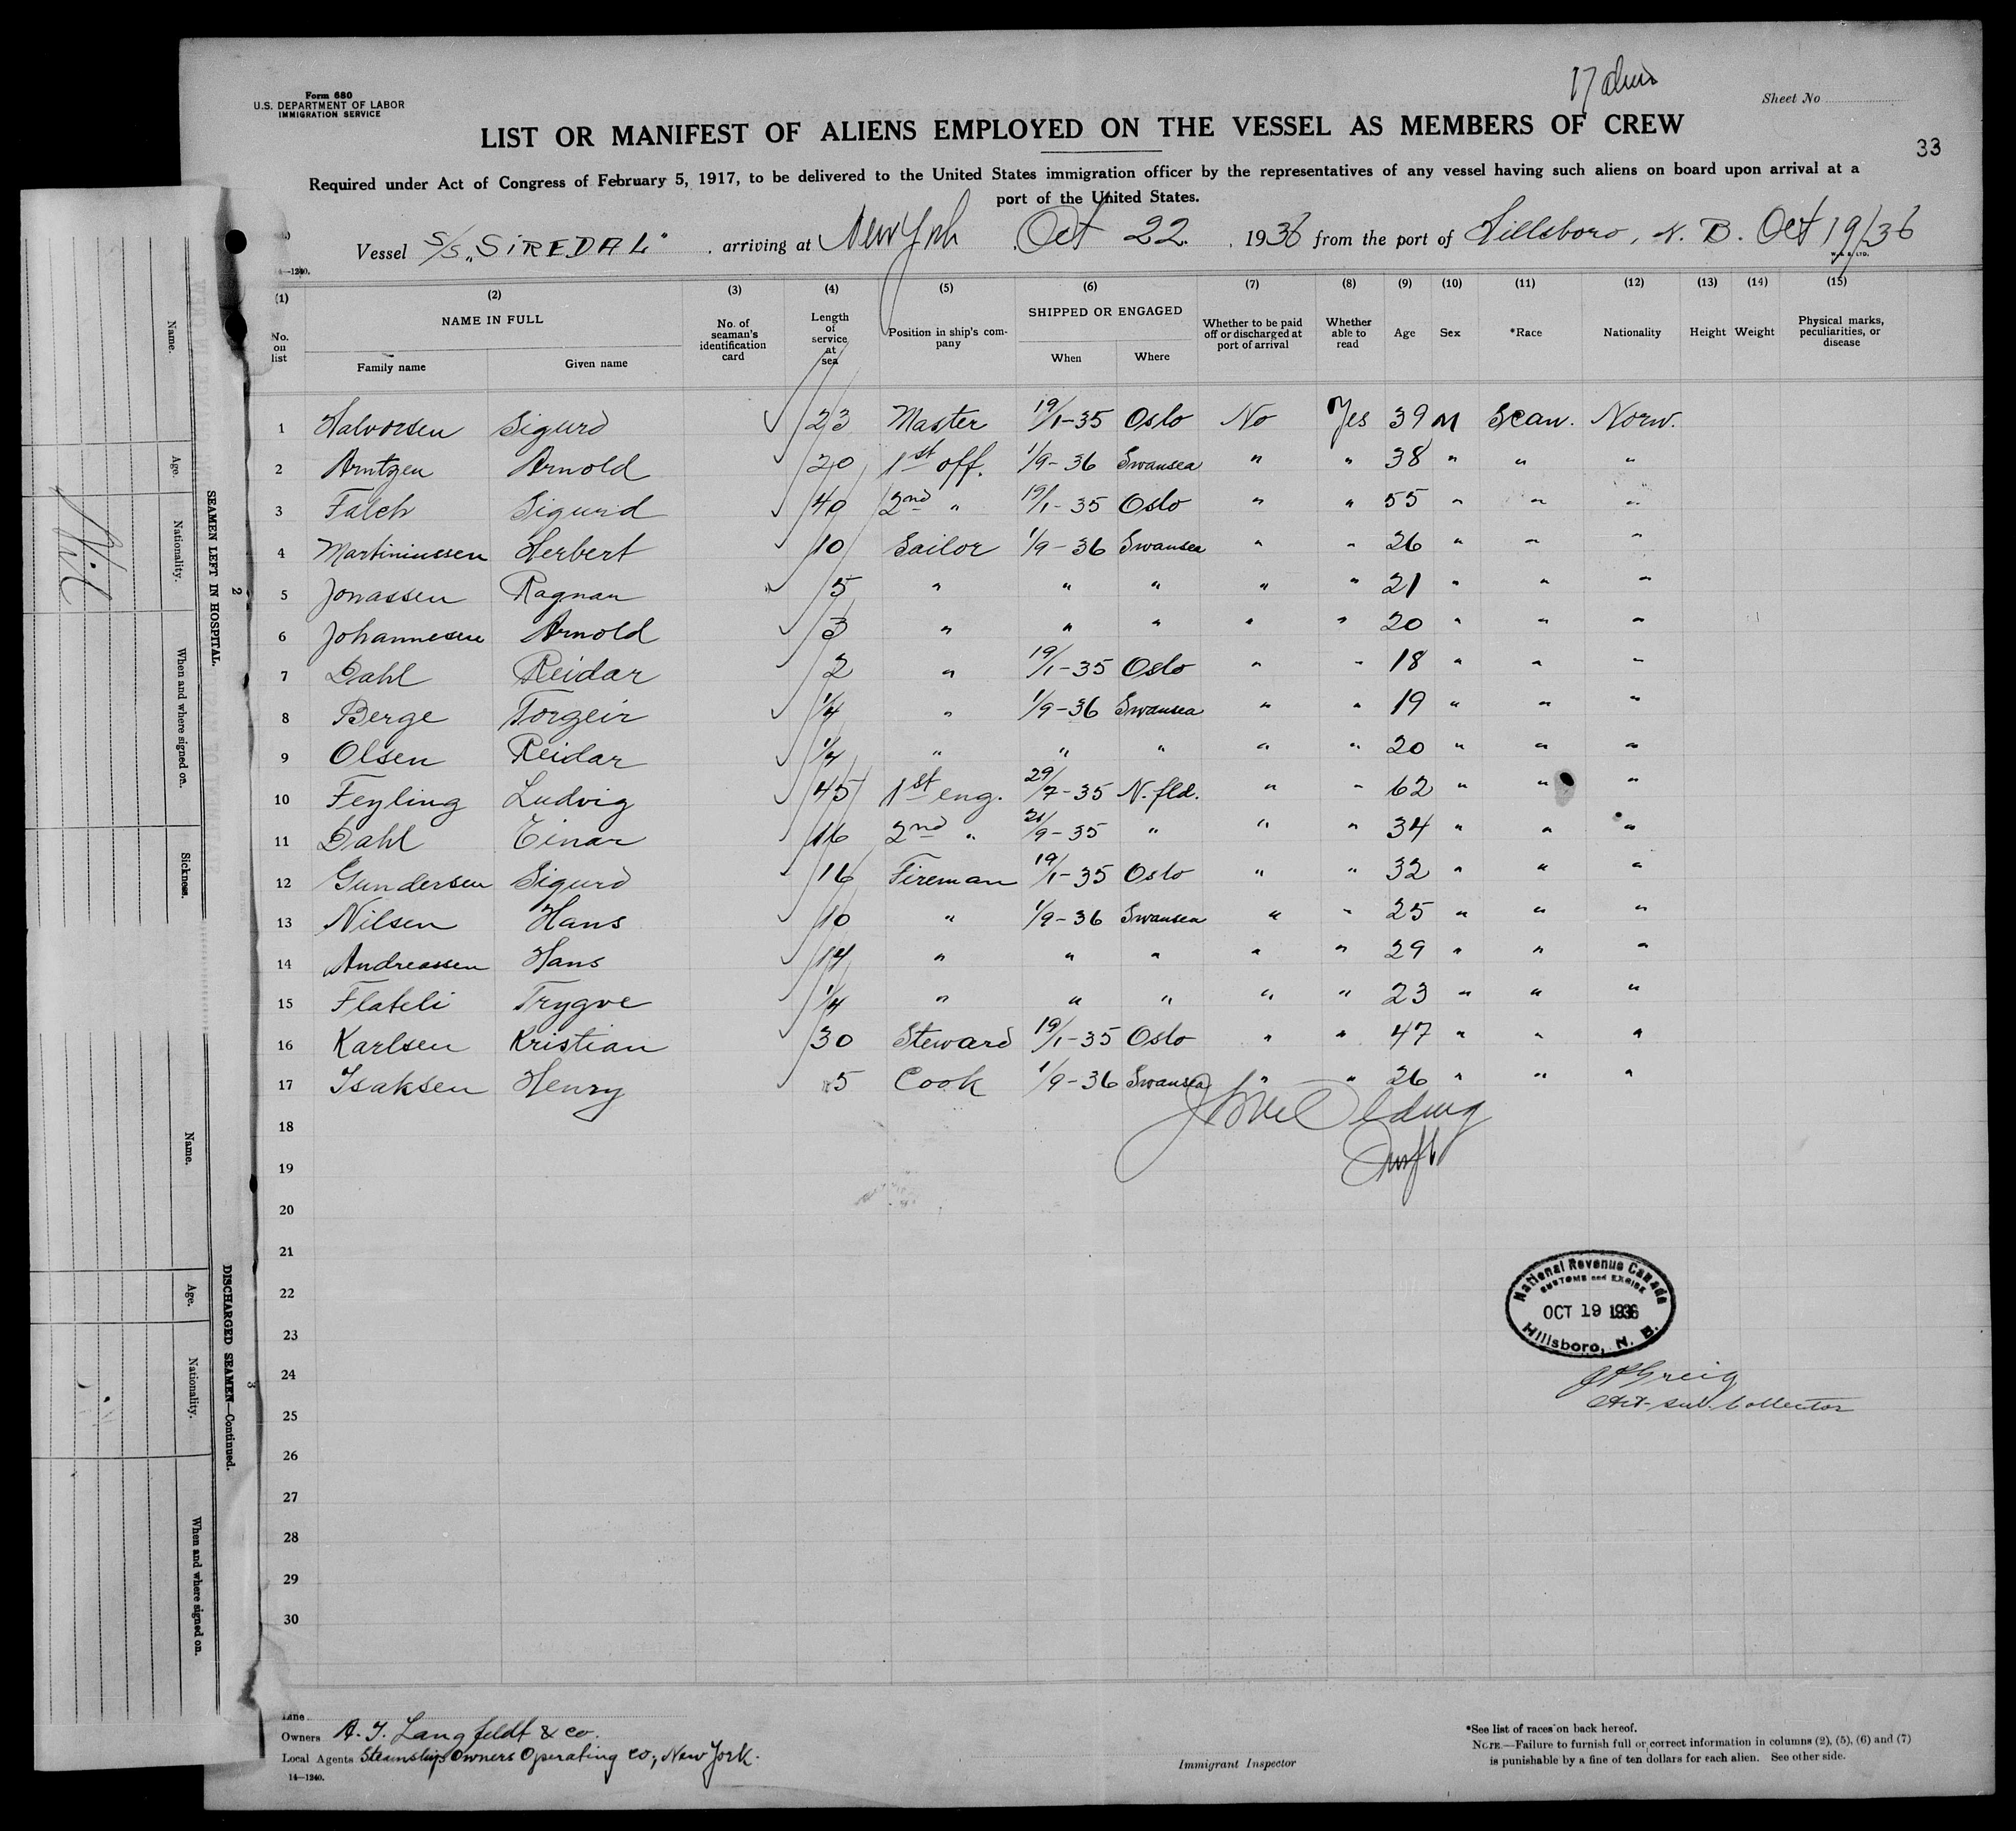 Form 680
U.S. DEPARTMENT OF LABOR
IMMIGRATION SERVICE
17
Sheet No
LIST OR MANIFEST OF ALIENS EMPLOYED ON THE VESSEL AS MEMBERS OF CREW
33
Required under Act of Congress of February 5, 1917, to be delivered to the United States immigration officer by the representatives of any vessel having such aliens on board upon arrival at a
port of the United States.
Vessel S/S „SIREDAL" arriving at New York Oct 22. 1936 from the port of Hillsboro, N. B. Oct 19/36
W. & S. LTD.
14—1240.
(1) (2) (3) (4) (5) (6) (7) (8) (9) (10) (11) (12) (13) (14) (15)
No. on list NAME IN FULL Family name Given name No. of seaman's identification card Length of service at sea Position in ship's company SHIPPED OR ENGAGED When Where Whether to be paid off or discharged at port of arrival Whether able to read Age Sex *Race Nationality Height Weight Physical marks, peculiarities, or disease
1 Halvorsen Sigurd 23 Master 19/1-35 Oslo No Yes 39 M Scan. Norw.
2 Arntzen Arnold 20 1st off. 1/9-36 Swansea " " 38 " " "
3 Falch Sigurd 40 2nd " 19/1-35 Oslo " " 55 " " "
4 Martiniussen Herbert 10 Sailor 1/9-36 Swansea " " 26 " " "
5 Jonassen Ragnar 5 " " " " " 21 " " "
6 Johannesen Arnold 3 " " " " " 20 " " "
7 Dahl Reidar 2 " 19/1-35 Oslo " " 18 " " "
8 Berge Torgeir 1/4 " 1/9-36 Swansea " " 19 " " "
9 Olsen Reidar 1/4 " " " " " 20 " " "
10 Feyling Ludvig 45 1st eng. 29/7-35 N.fld. " " 62 " " "
11 Dahl Einar 16 2nd " 21/9-35 " " " 34 " " "
12 Gundersen Sigurd 16 Fireman 19/1-35 Oslo " " 32 " " "
13 Nilsen Hans 10 " 1/9-36 Swansea " " 25 " " "
14 Andreassen Hans 14 " " " " " 29 " " "
15 Flateli Trygve 1/4 " " " " " 23 " " "
16 Karlsen Kristian 30 Steward 19/1-35 Oslo " " 47 " " "
17 Isaksen Henry 5 Cook 1/9-36 Swansea " " 26 " " "
18
19
20
21
22
23
24
25
26
27
28
29
30
National Revenue Canada
CUSTOMS and EXCISE
OCT 19 1936
Hillsboro, N. B.
Greig
Sub. Collector
Line
Owners A. I. Langfeldt & Co.
Local Agents Steamship Owners Operating Co., New York.
14—1240.
Immigrant Inspector
*See list of races on back hereof.
NOTE.—Failure to furnish full or correct information in columns (2), (5), (6) and (7)
is punishable by a fine of ten dollars for each alien. See other side.
2
SEAMEN LEFT IN HOSPITAL.
Name. Age. Nationality. When and where signed on. Sickness.
Nil
3
DISCHARGED SEAMEN—Continued.
Name. Age. Nationality. When and where signed on.